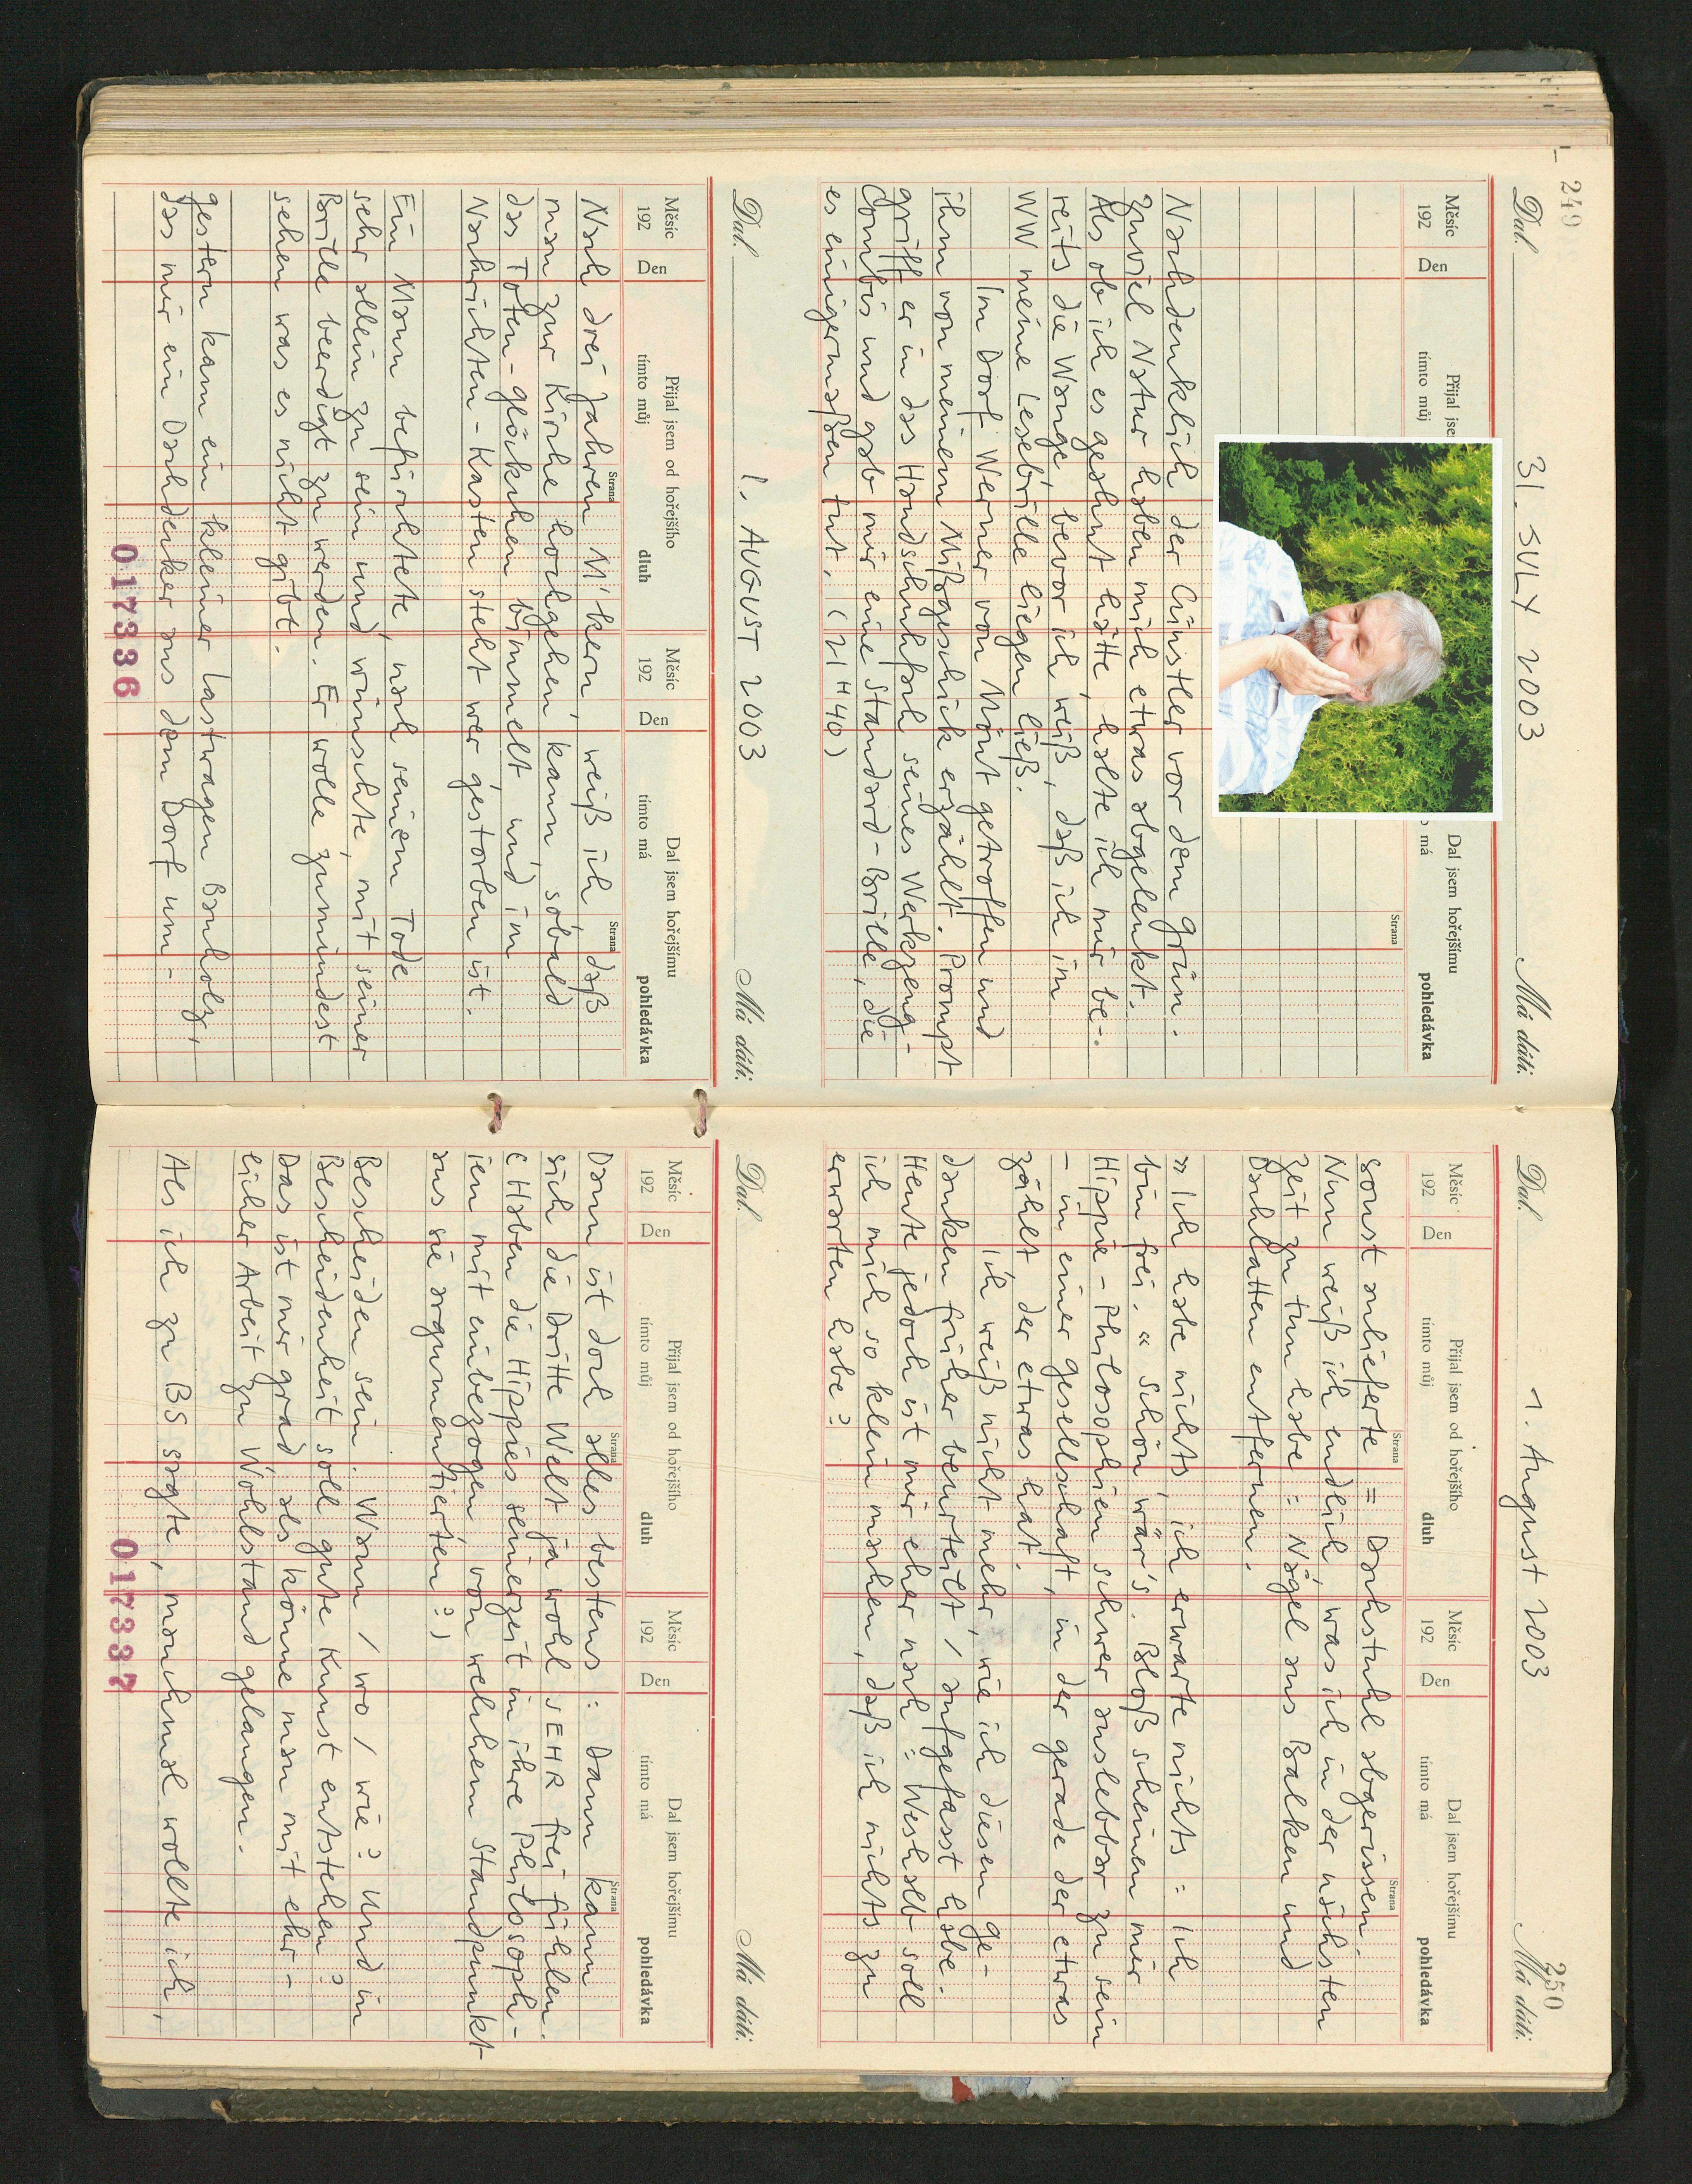 249
Dal. 31. JULY 2003 Má dáti.
Měsíc Přijal jse Dal jsem hořejšímu
192 Den tímto můj má pohledávka
Strana
Nachdenklich der Cünstler vor dem Grün.
Zuviel Natur haben mich etwas abgelenkt.
Als ob ich es geahnt hätte, halte ich mir be-
reits die Wange, bevor ich weiß, daß ich im
WW meine Lesebrille liegen ließ.
Im Dorf Werner von Mönt getroffen und
ihm von meinem Mißgeschick erzählt. Prompt
griff er in das Handschuhfach seines Werkzeug-
Combis und gab mir eine Standard-Brille, die
es einigermaßen tut. (21 H 40)
Dal. 1. AUGUST 2003 Má dáti.
Měsíc Přijal jsem od hořejšího Měsíc Dal jsem hořejšímu
192 Den tímto můj dluh 192 Den tímto má pohledávka
Strana Strana
Nach drei Jahren M'kern, weiß ich, daß
man zur Kirche hochgehen kann, sobald
das Toten-glöckchen bimmelt, und im
Nachrichten-Kasten steht wer gestorben ist.
Ein Mann befürchtete, nach seinem Tode
sehr allein zu sein und wünschte, mit seiner
Brille beerdigt zu werden. Er wolle zumindest
sehen was es nicht gibt.
gestern kam ein kleiner Lastwagen Bauholz,
das mir ein Dachdecker aus dem Dorf um-
017336
250
Dal. 1. August 2003 Má dáti.
Měsíc Přijal jsem od hořejšího Měsíc Dal jsem hořejšímu
192 Den tímto můj dluh 192 Den tímto má pohledávka
Strana Strana
sonst anlieferte = Dachstuhl abgerissen.
Nun weiß ich endlich, was ich in der nächsten
Zeit zu tun habe: Nägel aus Balken und
Dachlatten entfernen.
» Ich habe nichts, ich erwarte nichts: ich
bin frei. « Schön wär's. Bloß scheinen mir
Hippie-Philosophien schwer auslebbar zu sein
- in einer gesellschaft, in der gerade der etwas
zählt der etwas hat.
Ich weiß nicht mehr, wie ich diesen Ge-
danken früher beurteilt / aufgefasst habe.
Heute jedoch ist mir eher nach: Weshalb soll
ich mich so klein machen, daß ich nichts zu
erwarten habe?
Dal. Má dáti.
Měsíc Přijal jsem od hořejšího Měsíc Dal jsem hořejšímu
192 Den tímto můj dluh 192 Den tímto má pohledávka
Strana Strana
Dann ist doch alles bestens: Dann kann
sich die Dritte Welt ja wohl SEHR frei fühlen.
(Haben die Hippies seinerzeit in ihre Philosoph-
ien mit einbezogen, von welchem Standpunkt
aus sie argumentierten?)
Bescheiden sein. Wann / wo / wie? Und in
Bescheidenheit soll gute Kunst entstehen?
Das ist mir grad als könne man mit ehr-
licher Arbeit zu Wohlstand gelangen.
Als ich zu BS sagte, manchmal wollte ich,
017337